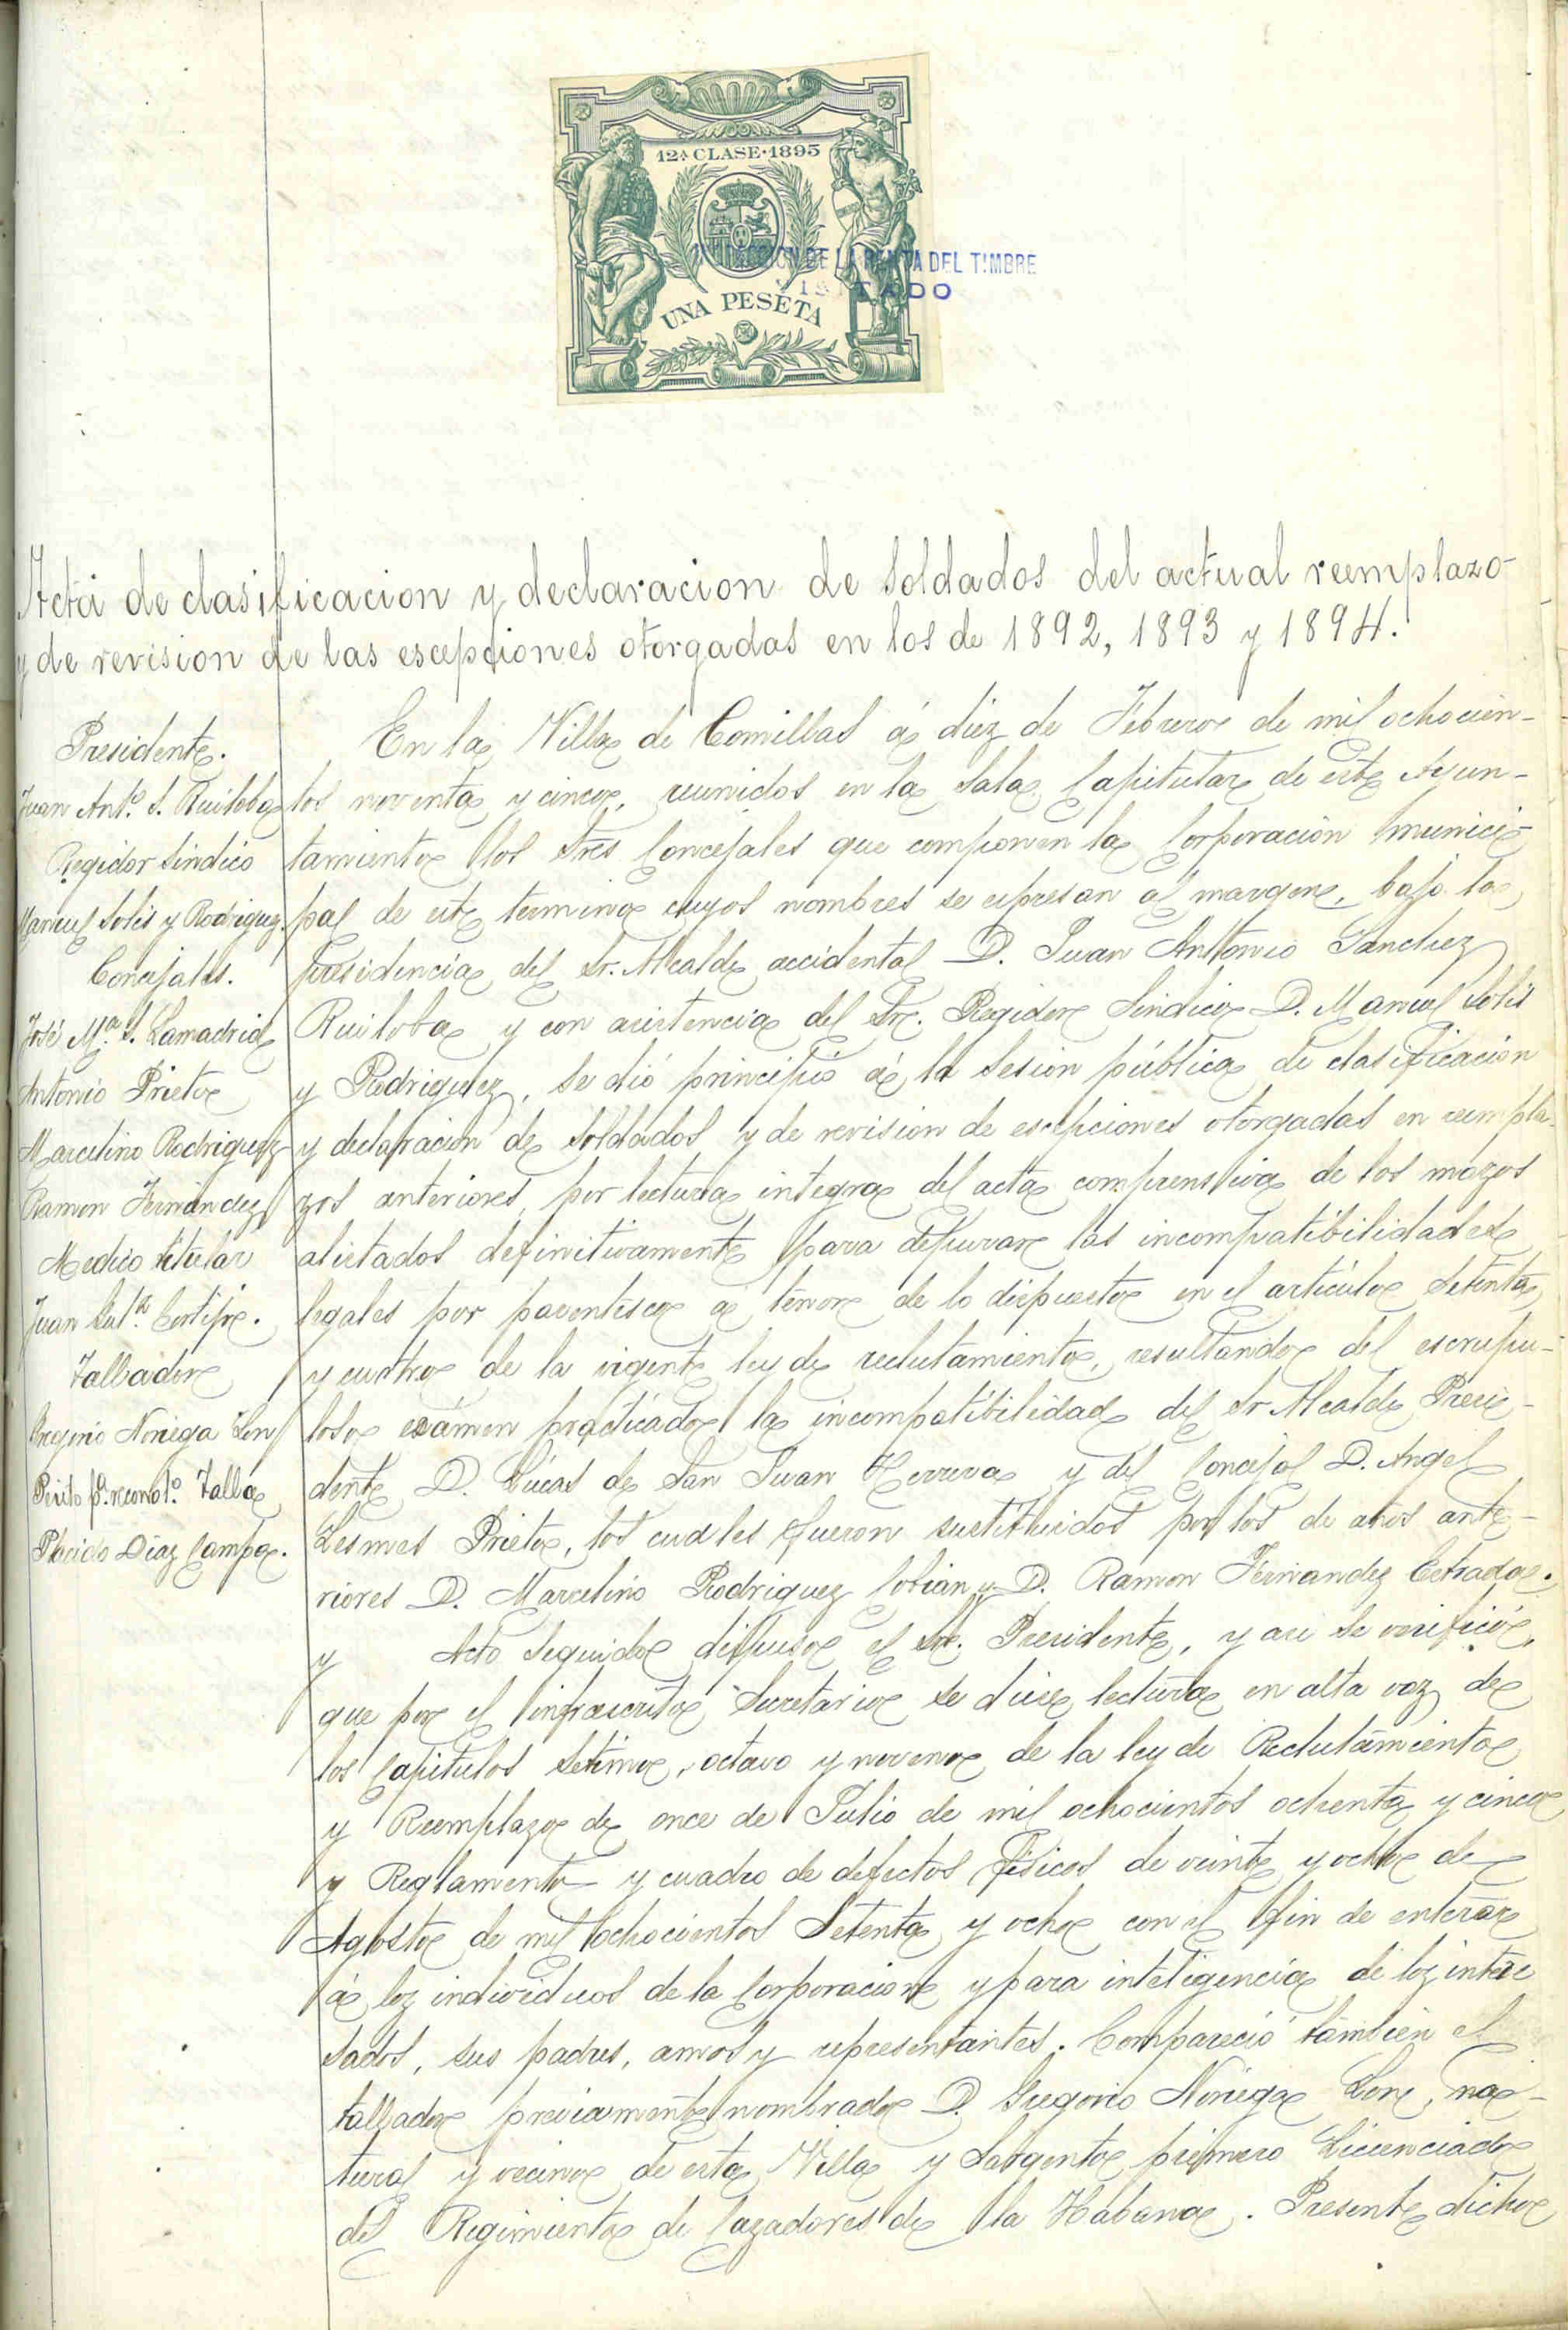 12ª CLASE·1895
INSPECCION DE LA RENTA DEL TIMBRE
VISITADO
UNA PESETA
Acta de clasificacion y declaracion de soldados del actual reemplazo
y de revision de las escepciones otorgadas en los de 1892, 1893 y 1894.
Presidente.
Juan Antº. S. Ruiloba
Regidor Sindico
Manuel Solis y Rodriguez.
Concejales.
José Mª. S. Lamadrid
Antonio Prieto
Marcelino Rodriguez
Ramon Fernandez
Medico titular
Juan
Tallador
Gregorio Noriega Len
Perito pª. reconotº. Talla
Placido Diaz Campo.
En la Villa de Comillas á diez de Febrero de mil ochocien-
tos noventa y cinco, reunidos en la Sala Capitular de este Ayun-
tamiento los Sres Concejales que componen la Corporacion munici-
pal de este termino cuyos nombres se espresan al margen, bajo la
presidencia del Sr. Alcalde accidental D. Juan Antonio Sanchez
Ruiloba y con asistencia del Sr. Regidor Sindico D. Manuel Solis
y Rodriguez, se dió principio á la sesion pública de clasificacion
y declaracion de soldados y de revision de escepciones otorgadas en reempla-
zos anteriores, por lectura integra del acta comprensiva de los mozos
alistados definitivamente para depurar las incompatibilidades
legales por parentesco a tenor de lo dispuesto en el articulo setenta
y cuatro de la vigente ley de reclutamiento, resultando del escrupu-
loso exámen practicado la incompatibilidad del Sr Alcalde Presi-
dente D. Lúcas de San Juan Herrera y del Concejal D. Angel
Lesmes Prieto, los cuales fueron sustituidos por los de años ante-
riores D. Marcelino Rodriguez Cobian y D. Ramon Fernandez Estrada.
y Acto seguido dispuso el Sr. Presidente, y asi se verificó,
que por el infrascrito Secretario se diese lectura en alta voz de
los capitulos setimo, octavo y noveno de la ley de Reclutamiento
y Reemplazo de once de Julio de mil ochocientos ochenta y cinco
y Reglamento y cuadro de defectos fisicos de veinte y ocho de
Agosto de mil ochocientos setenta y ocho con el fin de enterar
á loz individuos de la Corporacion y para inteligencia de loz intere
sados, sus padres, amos y representantes. Compareció tambien el
tallador previamente nombrado D. Gregorio Noriega Len, na-
tural y vecino de esta Villa y Sargento primero Licenciado
del Regimiento de Cazadores de la Habana. Presente dicho